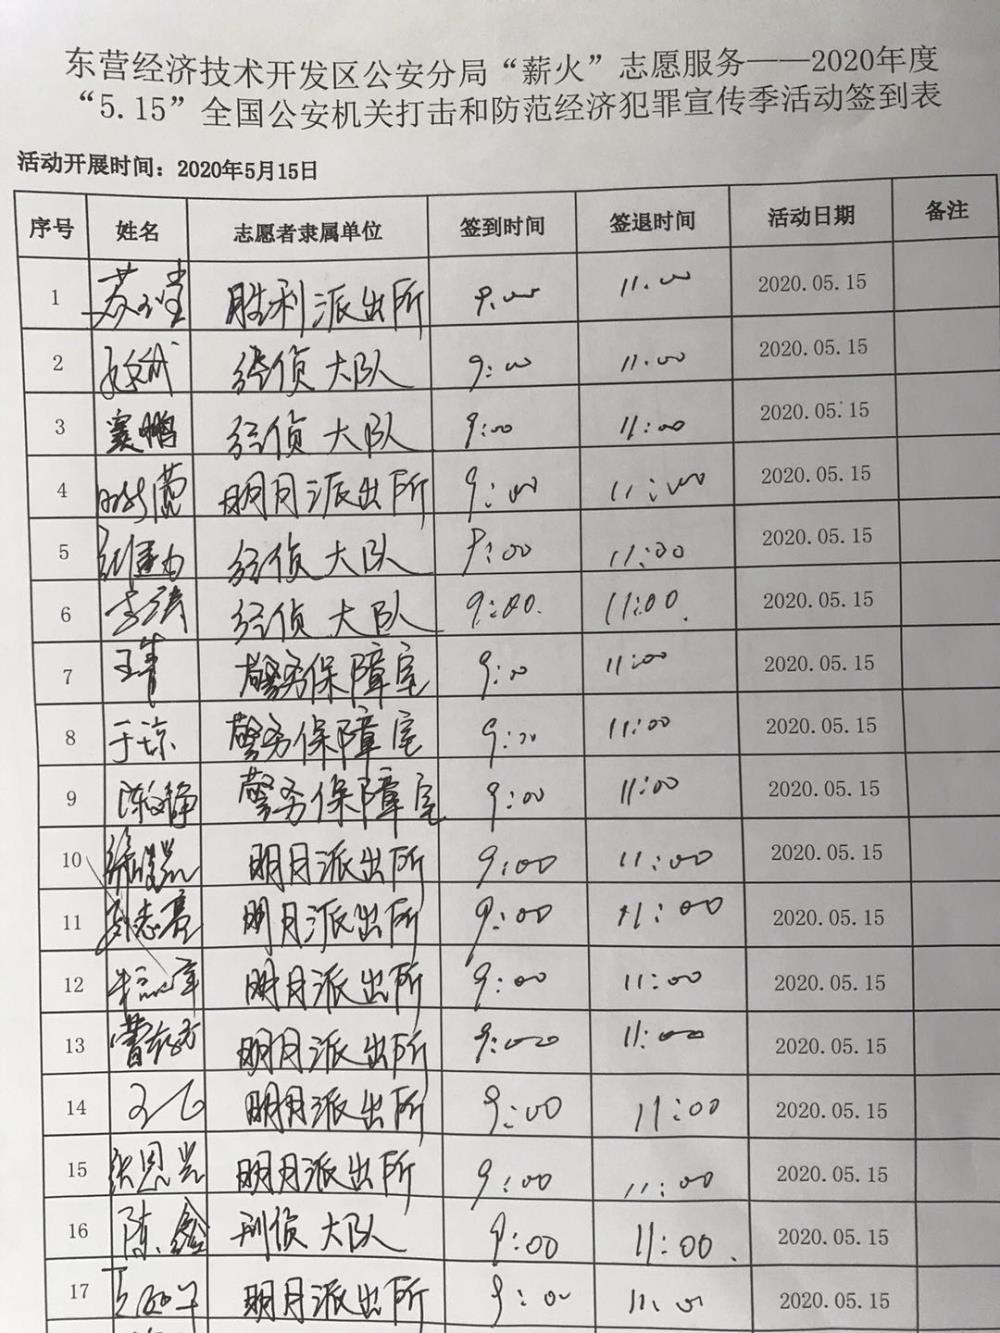 东营经济技术开发区公安分局“薪火”志愿服务——2020年度
“5.15”全国公安机关打击和防范经济犯罪宣传季活动签到表
活动开展时间：2020年5月15日
序号 姓名 志愿者隶属单位 签到时间 签退时间 活动日期 备注
1 胜利派出所 9:00 11:00 2020.05.15
2 经侦大队 9:00 11:00 2020.05.15
3 窦鹏 经侦大队 9:00 11:00 2020.05.15
4 明月派出所 9:00 11:00 2020.05.15
5 经侦大队 9:00 11:00 2020.05.15
6 李涛 经侦大队 9:00 11:00 2020.05.15
7 警务保障室 9:00 11:00 2020.05.15
8 于琼 警务保障室 9:00 11:00 2020.05.15
9 陈文静 警务保障室 9:00 11:00 2020.05.15
10 明月派出所 9:00 11:00 2020.05.15
11 明月派出所 9:00 11:00 2020.05.15
12 明月派出所 9:00 11:00 2020.05.15
13 明月派出所 9:00 11:00 2020.05.15
14 明月派出所 9:00 11:00 2020.05.15
15 张恩光 明月派出所 9:00 11:00 2020.05.15
16 陈鑫 刑侦大队 9:00 11:00 2020.05.15
17 明月派出所 9:00 11:00 2020.05.15